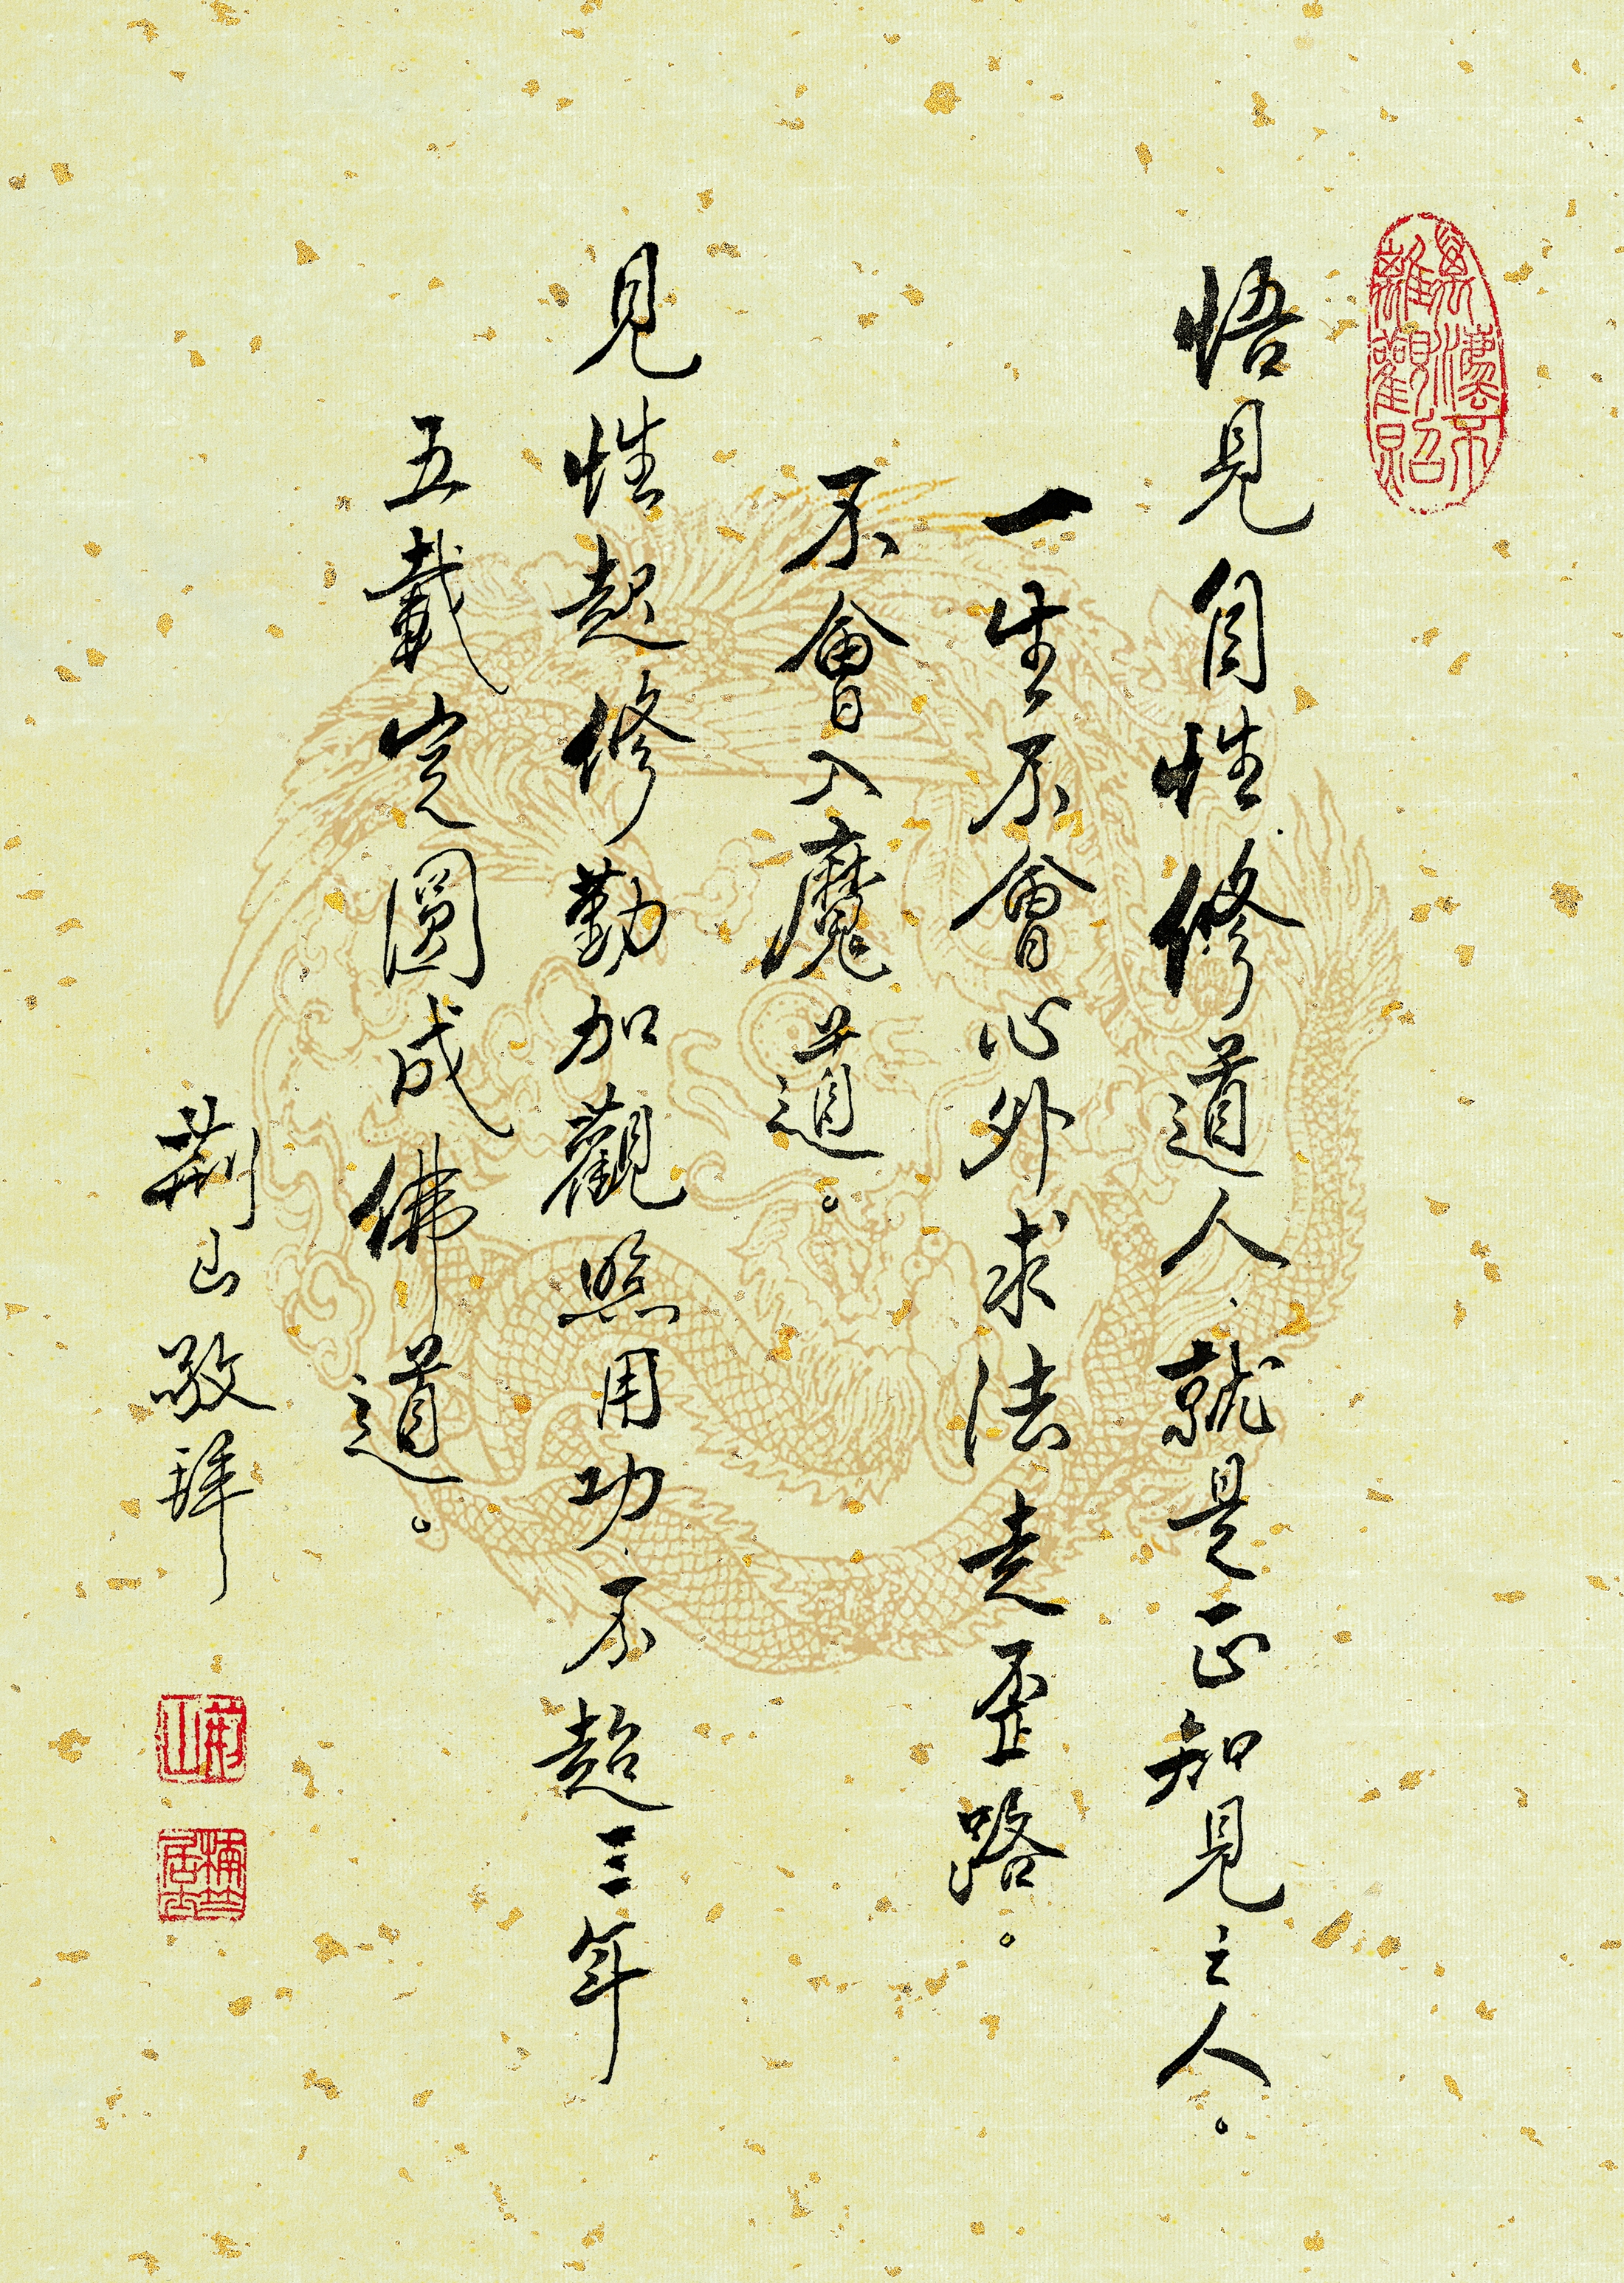 悟見自性修道人、就是正知見之人。
一生不會心外求法走歪路。
不會入魔道。
見性起修勤加觀照用功、不超三年
五載定圓成佛道。
荊山敬拜
萬法不離觀照
荊山
居士